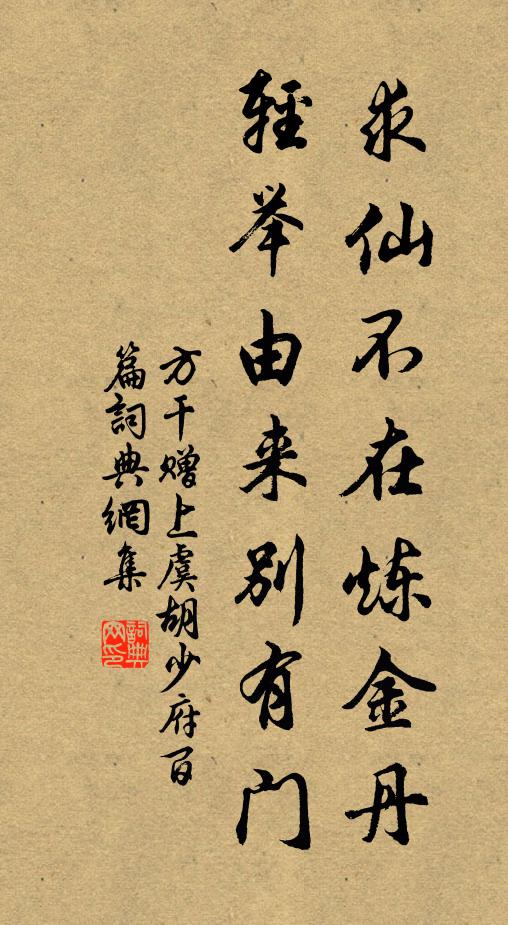 求仙不在炼金丹
轻举由来别有门
方干赠上虞胡少府百
篇词典網集
詞典
网印